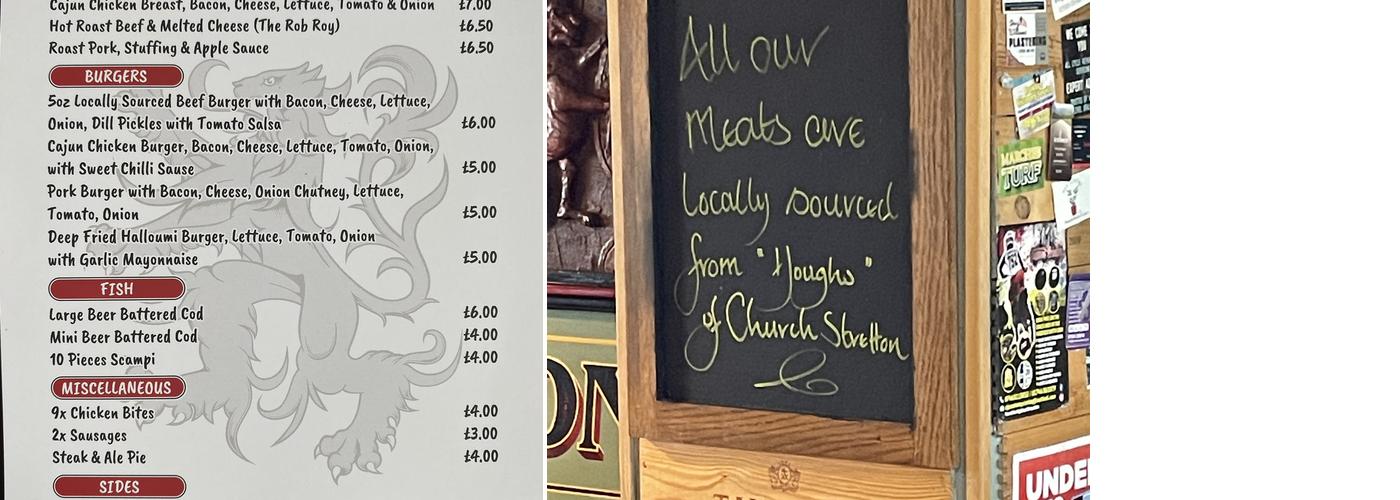 Cajun Chicken Breast, Bacon, Cheese, Lettuce, Tomato & Onion £7.00
Hot Roast Beef & Melted Cheese (The Rob Roy) £6.50
Roast Pork, Stuffing & Apple Sauce £6.50
BURGERS
5oz Locally Sourced Beef Burger with Bacon, Cheese, Lettuce,
Onion, Dill Pickles with Tomato Salsa £6.00
Cajun Chicken Burger, Bacon, Cheese, Lettuce, Tomato, Onion,
with Sweet Chilli Sause £5.00
Pork Burger with Bacon, Cheese, Onion Chutney, Lettuce,
Tomato, Onion £5.00
Deep Fried Halloumi Burger, Lettuce, Tomato, Onion
with Garlic Mayonnaise £5.00
FISH
Large Beer Battered Cod £6.00
Mini Beer Battered Cod £4.00
10 Pieces Scampi £4.00
MISCELLANEOUS
9x Chicken Bites £4.00
2x Sausages £3.00
Steak & Ale Pie £4.00
SIDES
All our
Meats are
Locally sourced
from "Houghs"
of Church Stretton
ON
PLASTERING
WE COME
YOU
TURF
UNDE